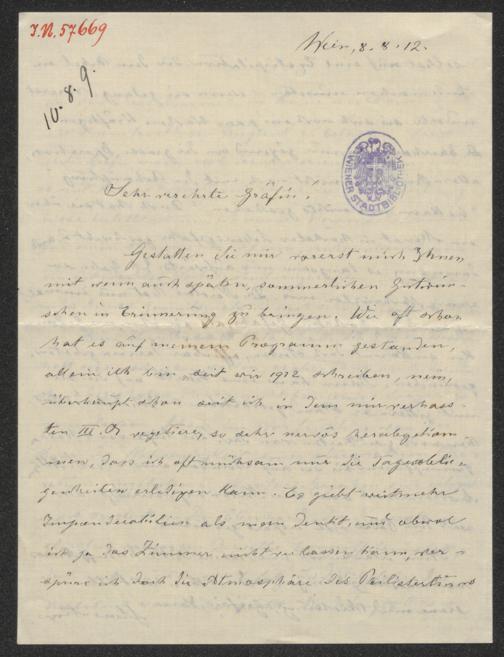 J.N. 57669
Wien, 8. 8. 12.
10. 8. 9.
WIENER STADTBIBLIOTHEK
Sehr verehrte Gräfin!
Gestatten Sie mir vorerst mich Ihnen
mit wenn auch späten, sommerlichen Gutwün-
schen in Erinnerung zu bringen. Wie oft schon
hat es auf meinem Programm gestanden,
allein ich bin seit wir 1912 schreiben, nein,
überhaupt schon seit ich in dem mir verhass-
ten III. vegetiere, so sehr nervös herabgekom-
men, dass ich oft mühsam nur die Tagesoblie-
genheiten erledigen kann. Es giebt weit mehr
Imponderabilien als man denkt, und obwol
ich ja das Zimmer nicht verlassen kann, ver-
spüre ich doch die Atmosphäre des Philistertums